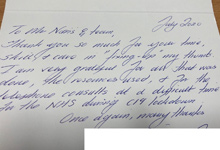 July 2020
To Mr Nans & team,
Thank you so much for your time,
skill & care in "fixing-up" my
I am very grateful for all that was
done, the resources used, & for the
telephone consults at a difficult time
for the NHS during C19 lockdown
Once again, many thanks